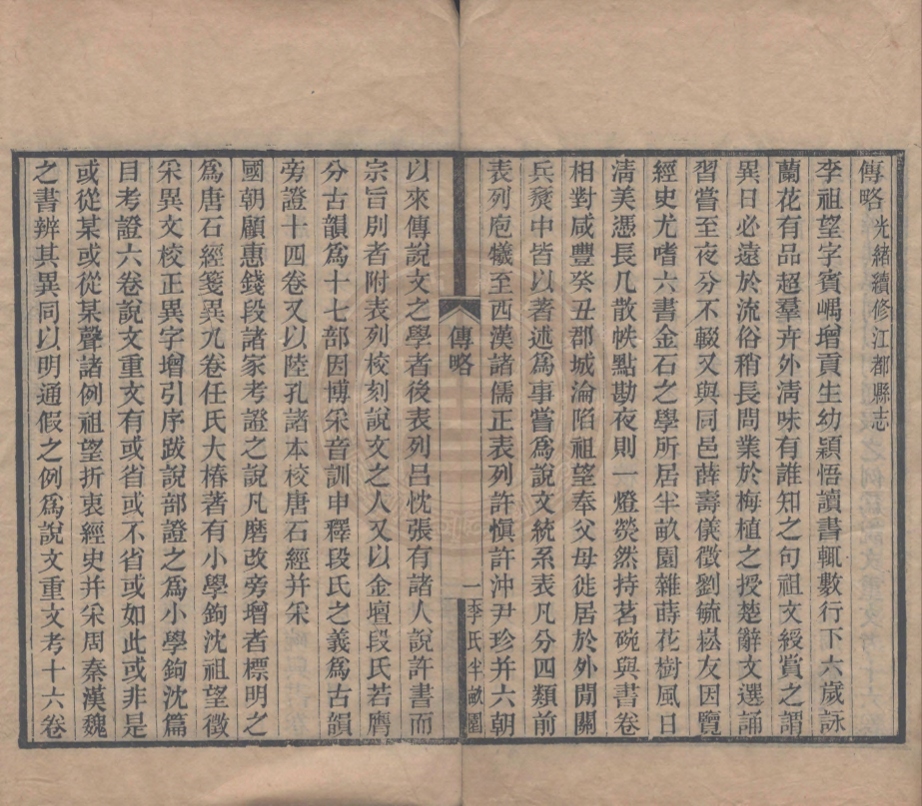 傳略光緒續修江都縣志
李祖望字賓嵎增貢生幼穎悟讀書輒數行下六歲詠
蘭花有品超羣卉外清味有誰知之句祖文綬賞之謂
異日必遠於流俗稍長問業於梅植之授楚辭文選誦
習嘗至夜分不輟又與同邑薛壽儀徵劉毓崧友因覽
經史尤嗜六書金石之學所居半畝園雜蒔花樹風日
淸美憑長几散帙點勘夜則一燈熒然持茗碗與書卷
相對咸豐癸丑郡城淪陷祖望奉父母徙居於外閒關
兵燹中皆以著述爲事嘗爲說文統系表凡分四類前
表列庖犧至西漢諸儒正表列許愼許沖尹珍并六朝
傳略
一
李氏半畝園
以來傳說文之學者後表列呂忱張有諸人說許書而
宗旨別者附表列校刻說文之人又以金壇段氏若膺
分古韻爲十七部因博采音訓申釋段氏之義爲古韻
旁證十四卷又以陸孔諸本校唐石經并采
國朝顧惠錢段諸家考證之說凡磨改旁增者標明之
爲唐石經箋異九卷任氏大椿著有小學鉤沈祖望徵
采異文校正異字增引序跋說部證之爲小學鉤沈篇
目考證六卷說文重文有或省或不省或如此或非是
或從某或從某聲諸例祖望折衷經史并采周秦漢魏
之書辨其異同以明通假之例爲說文重文考十六卷